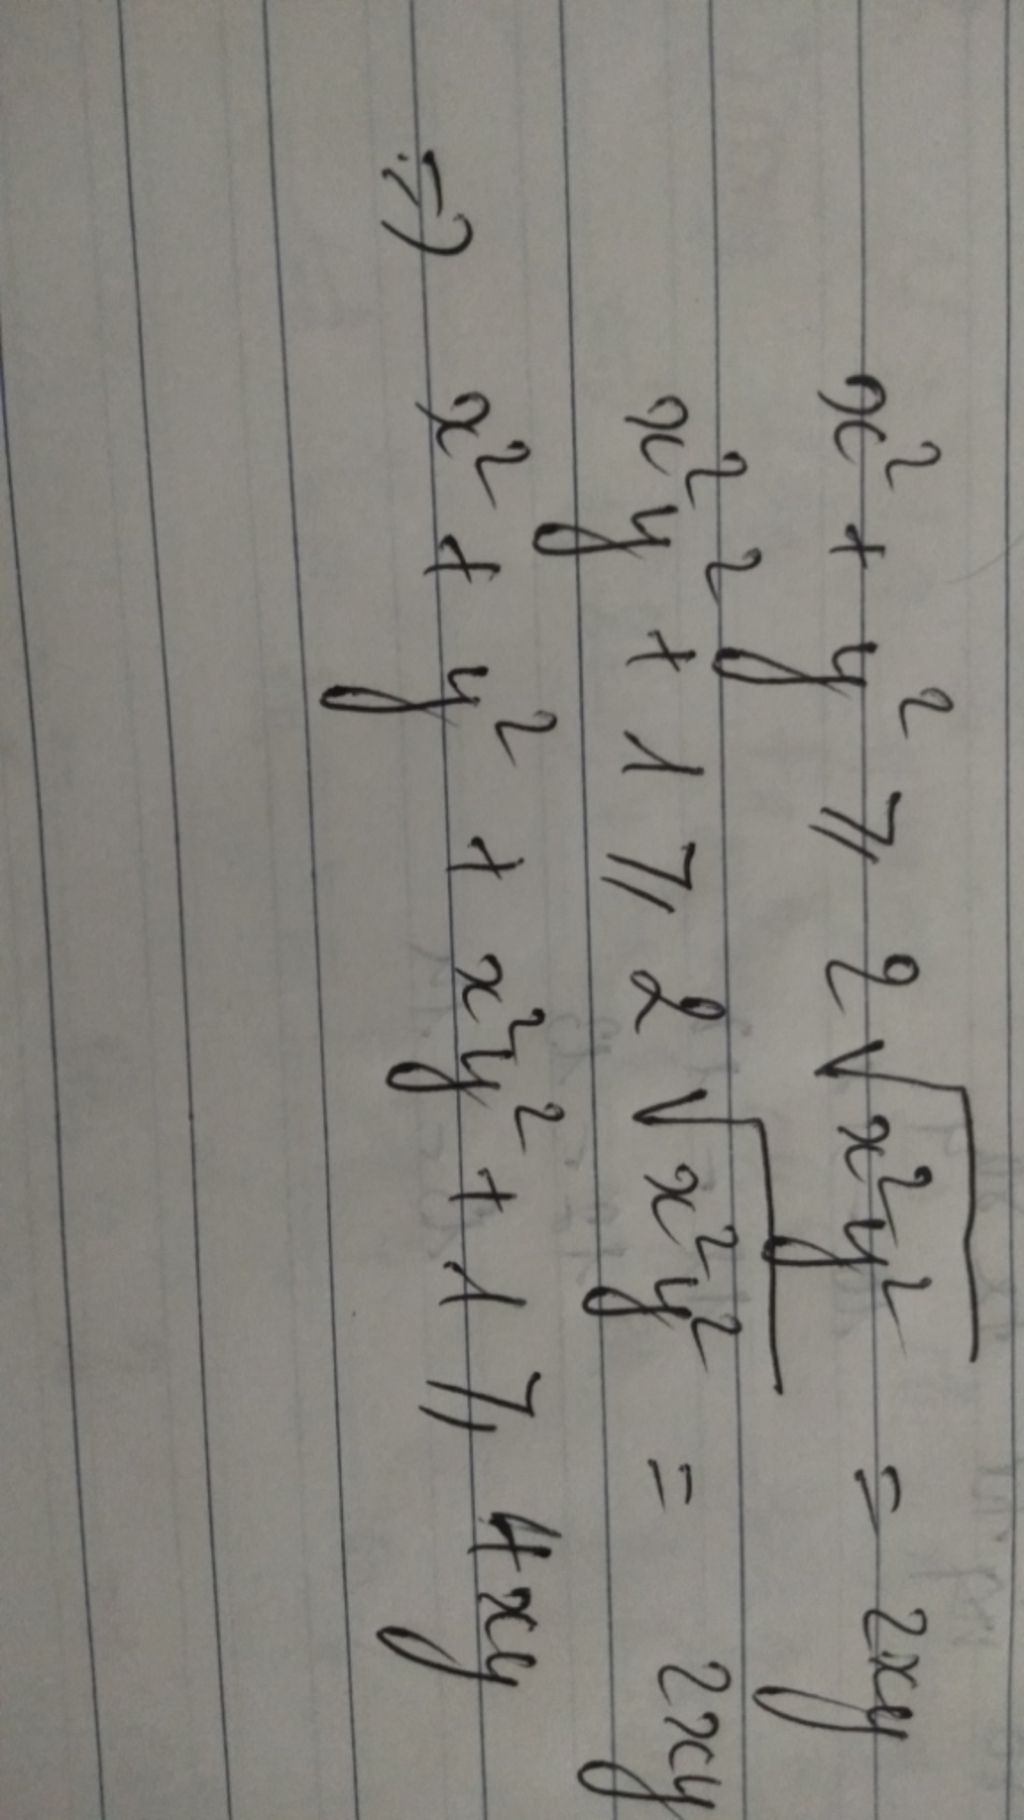 x² + y² ⩾ 2√x²y² = 2xy
x²y² + 1 ⩾ 2√x²y² = 2xy
=> x² + y² + x²y² + 1 ⩾ 4xy